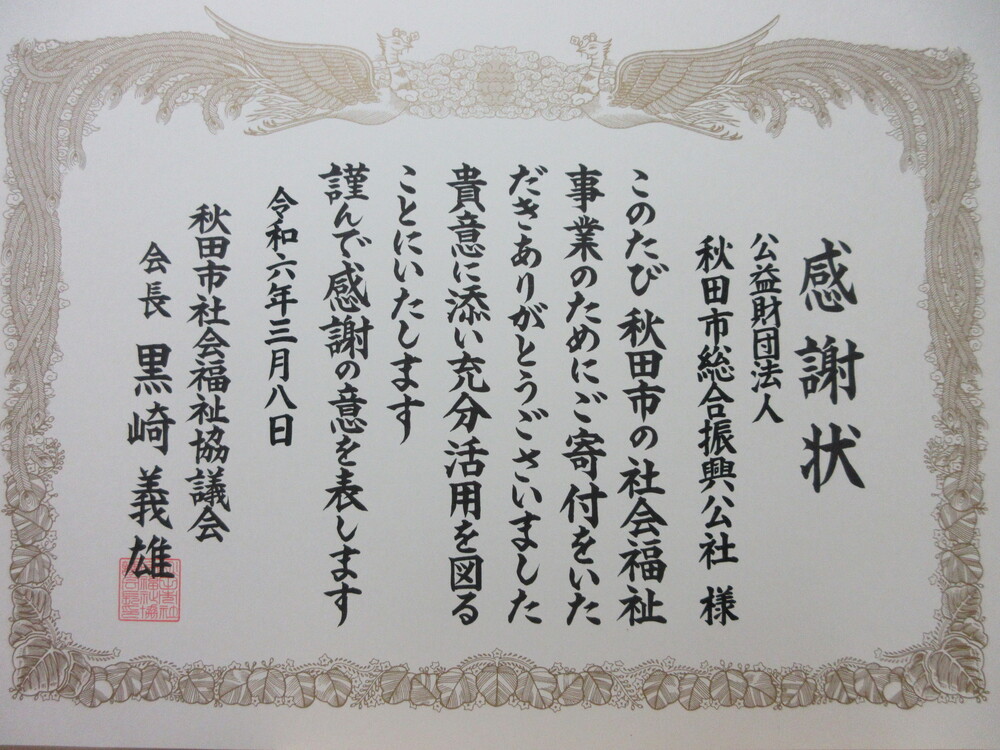 感謝状
公益財団法人
秋田市総合振興公社 様
このたび 秋田市の社会福祉
事業のためにご寄付をいた
だきありがとうございました
貴意に添い充分活用を図る
ことにいたします
謹んで感謝の意を表します
令和六年三月八日
秋田市社会福祉協議会
会長 黒崎義雄